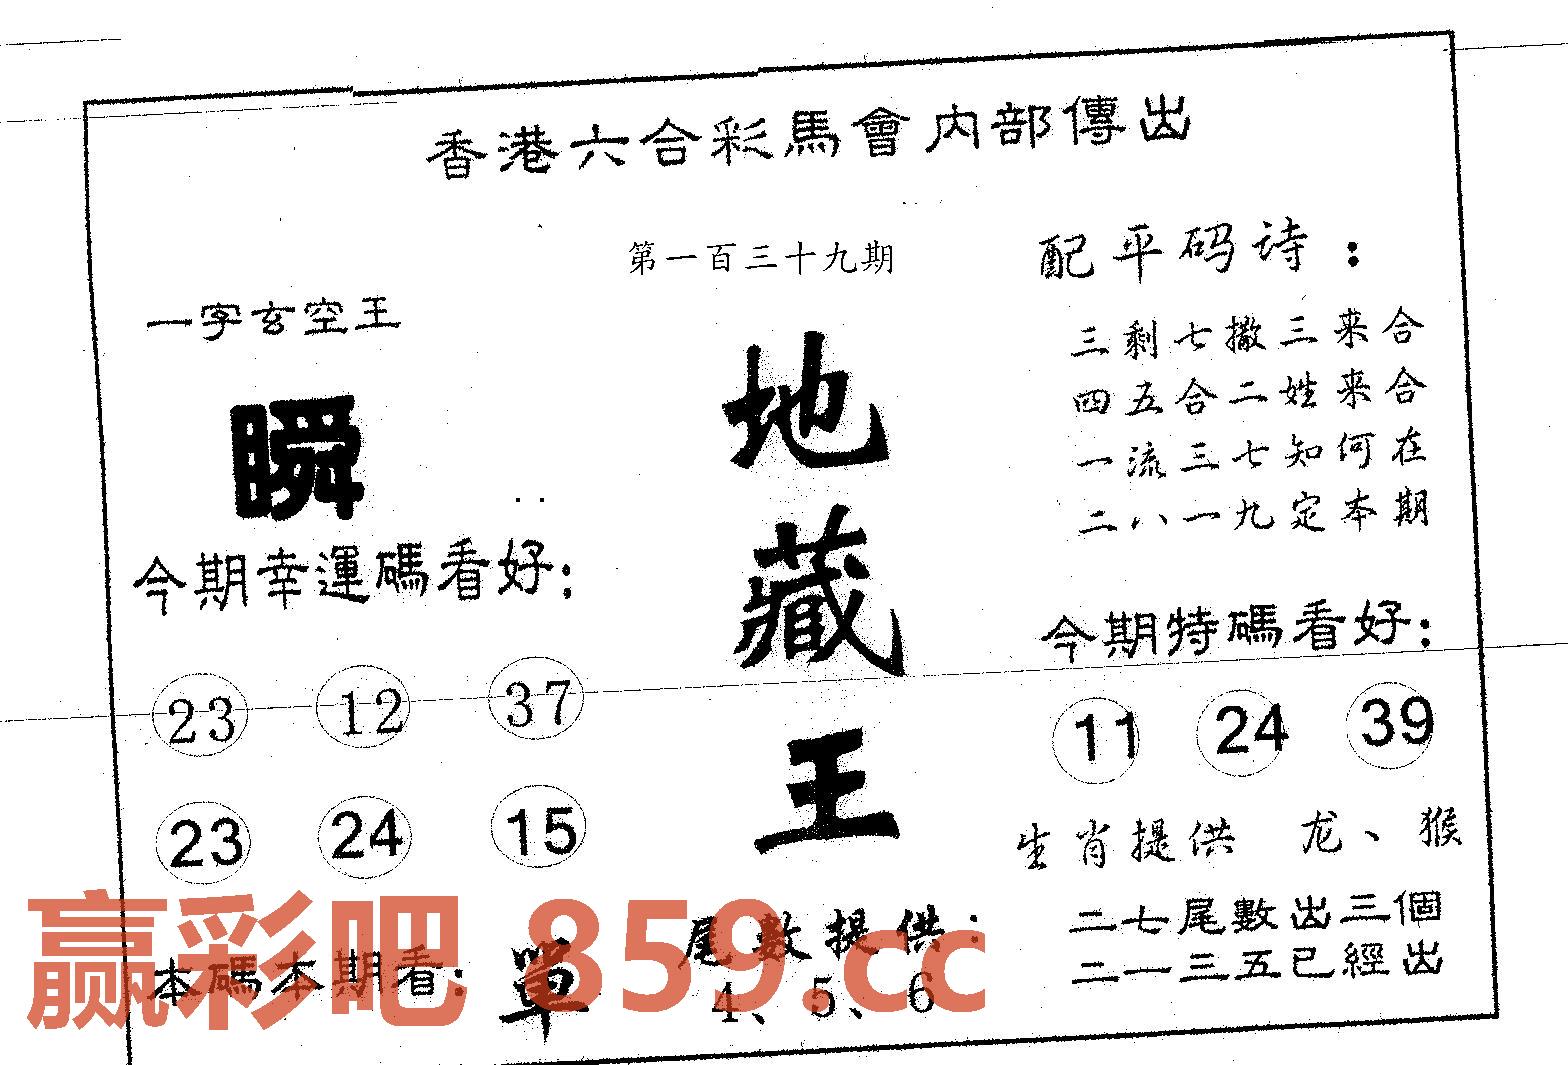 香港六合彩馬會內部傳出
第一百三十九期
一字玄空王
瞬
今期幸運碼看好:
23 12 37
23 24 15
本碼本期看: 單
地
藏
王
尾數提供:
4、5、6
配平码诗:
三剩七撒三来合
四五合二姓来合
一流三七知何在
二八一九定本期
今期特碼看好:
11 24 39
生肖提供 龙、猴
二七尾數出三個
二一三五已經出
赢彩吧 859.cc